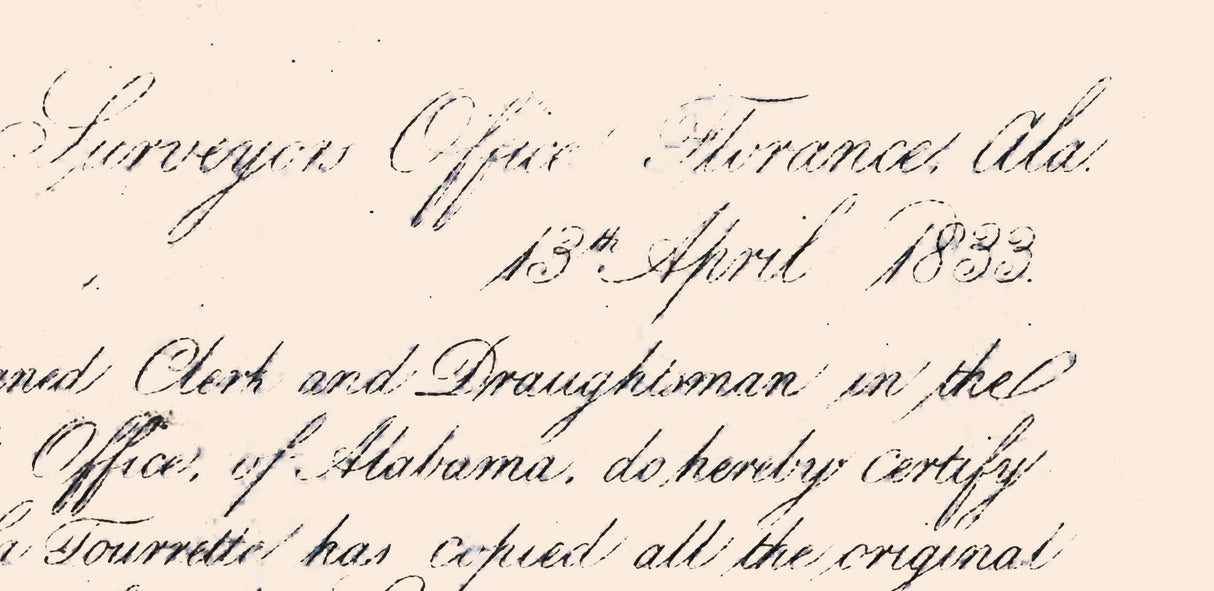 Surveyors Office Florance, Ala.
13th April 1833.
ned Clerk and Draughtsman in the
Office, of Alabama, do hereby certify
a Tourrette has copied all the original